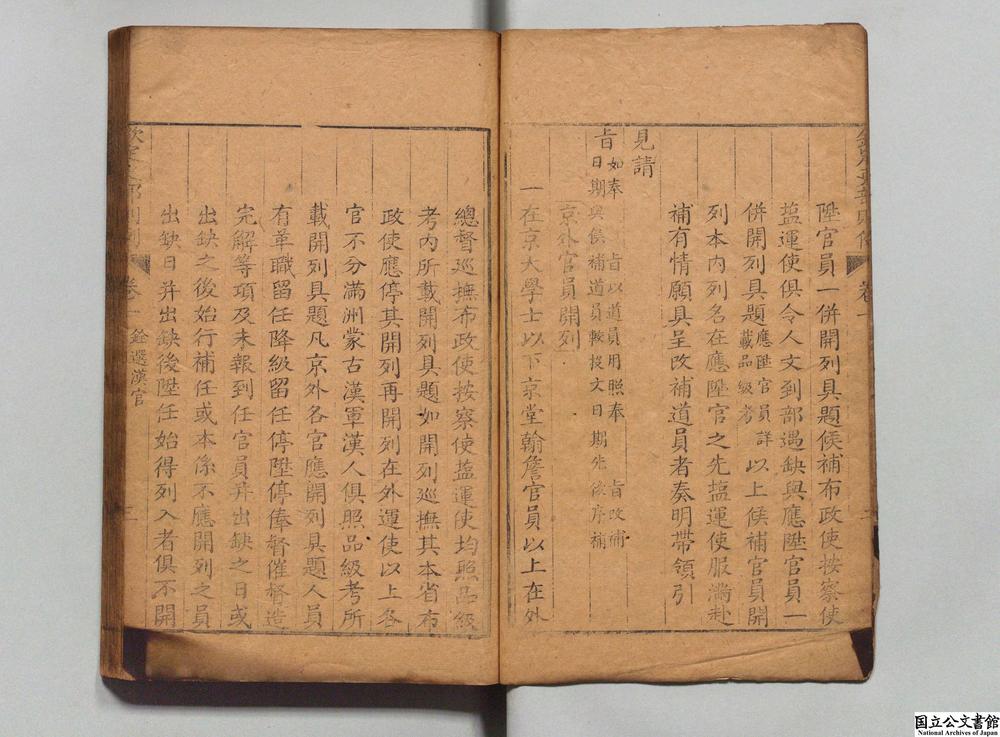 陞官員一併開列具題候補布政使按察使
塩運使俱令人文到部遇缺與應陞官員一
併開列具題應陞官員詳載品級考以上候補官員開
列本内列名在應陞官之先塩運使服滿赴
補有情願具呈改補道員者奏明帶領引
見請
旨如奉旨以道員用照奉旨改補日期與候補道員較投文日期先後序補
京外官員開列
一在京大學士以下京堂翰詹官員以上在外
欽定吏部則例
卷一
銓選漢官
二
總督巡撫布政使按察使塩運使均照品級
考内所載開列具題如開列巡撫其本省布
政使應停其開列再開列在外運使以上各
官不分滿洲蒙古漢軍漢人俱照品級考所
載開列具題凡京外各官應開列具題人員
有革職留任降級留任停陞停俸督催督造
完解等項及未報到任官員并出缺之日或
出缺之後始行補任或本係不應開列之員
出缺日并出缺後陞任始得列入者俱不開
国立公文書館
National Archives of Japan